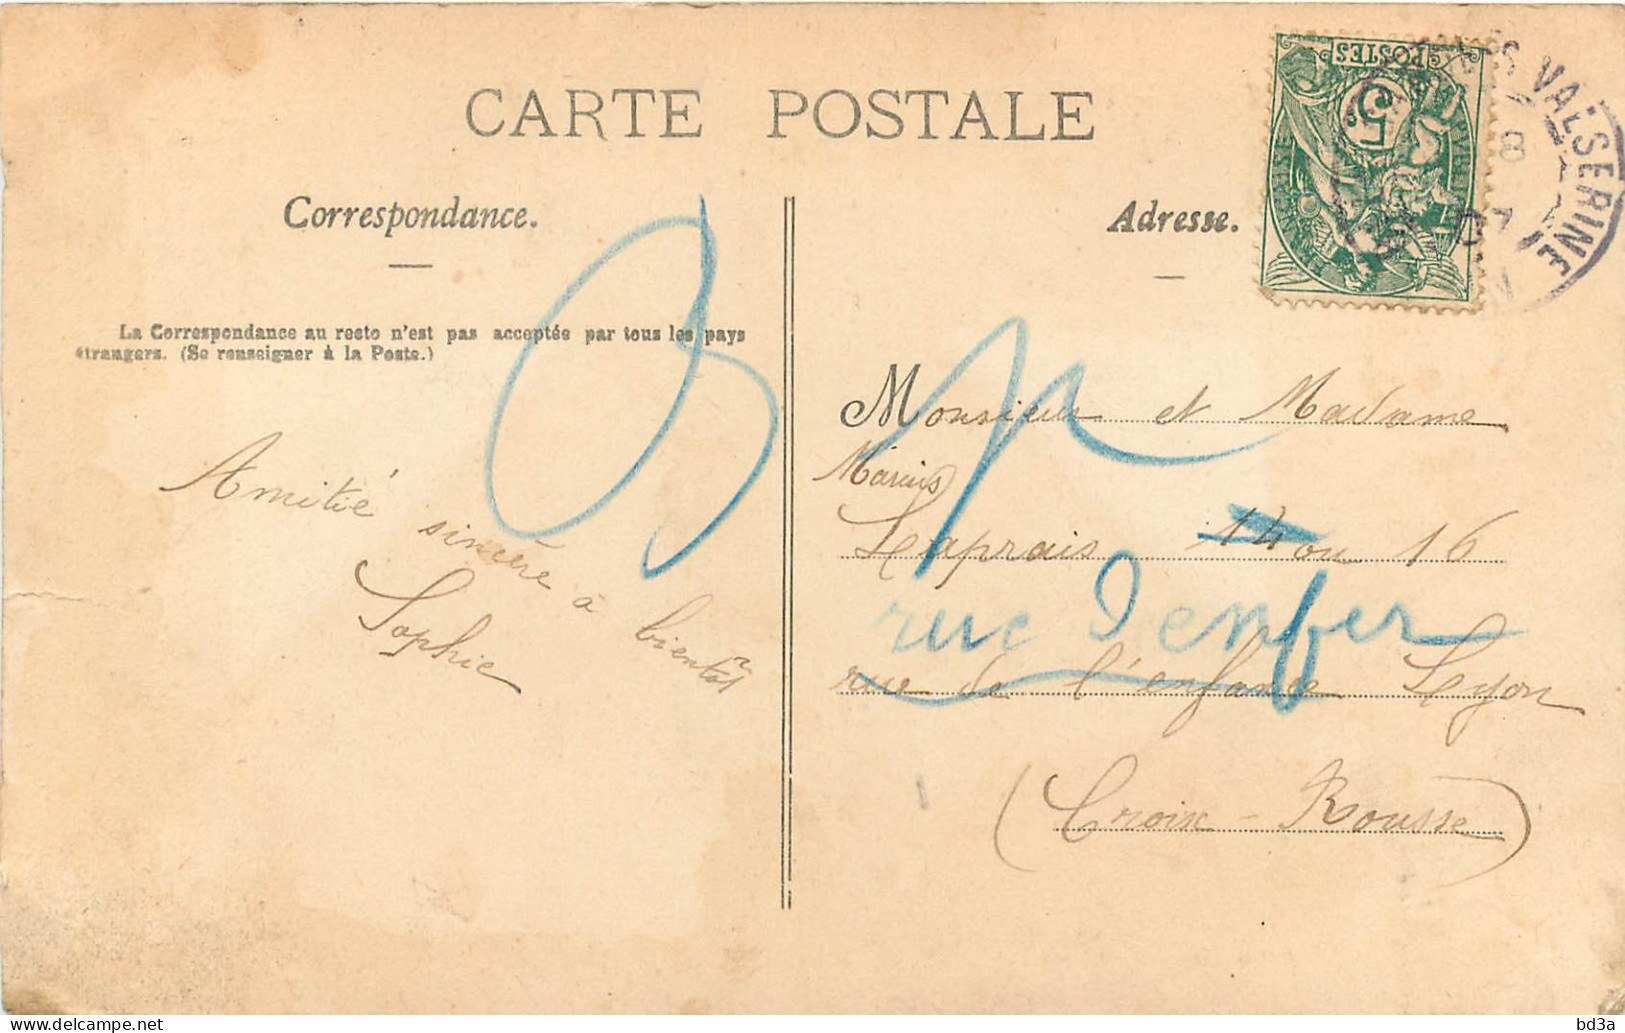 CARTE POSTALE
Correspondance.
La Correspondance au recto n'est pas acceptée par tous les pays
étrangers. (Se renseigner à la Poste.)
Amitié
sincère à bientôt
Sophie
Adresse.
POSTES
5
VALSERINE
8
07
Monsieur et Madame
Marius
Laprais 14 ou 16
rue Denfer
rue de l'enfance Lyon
(Croix-Rousse)
bd3a